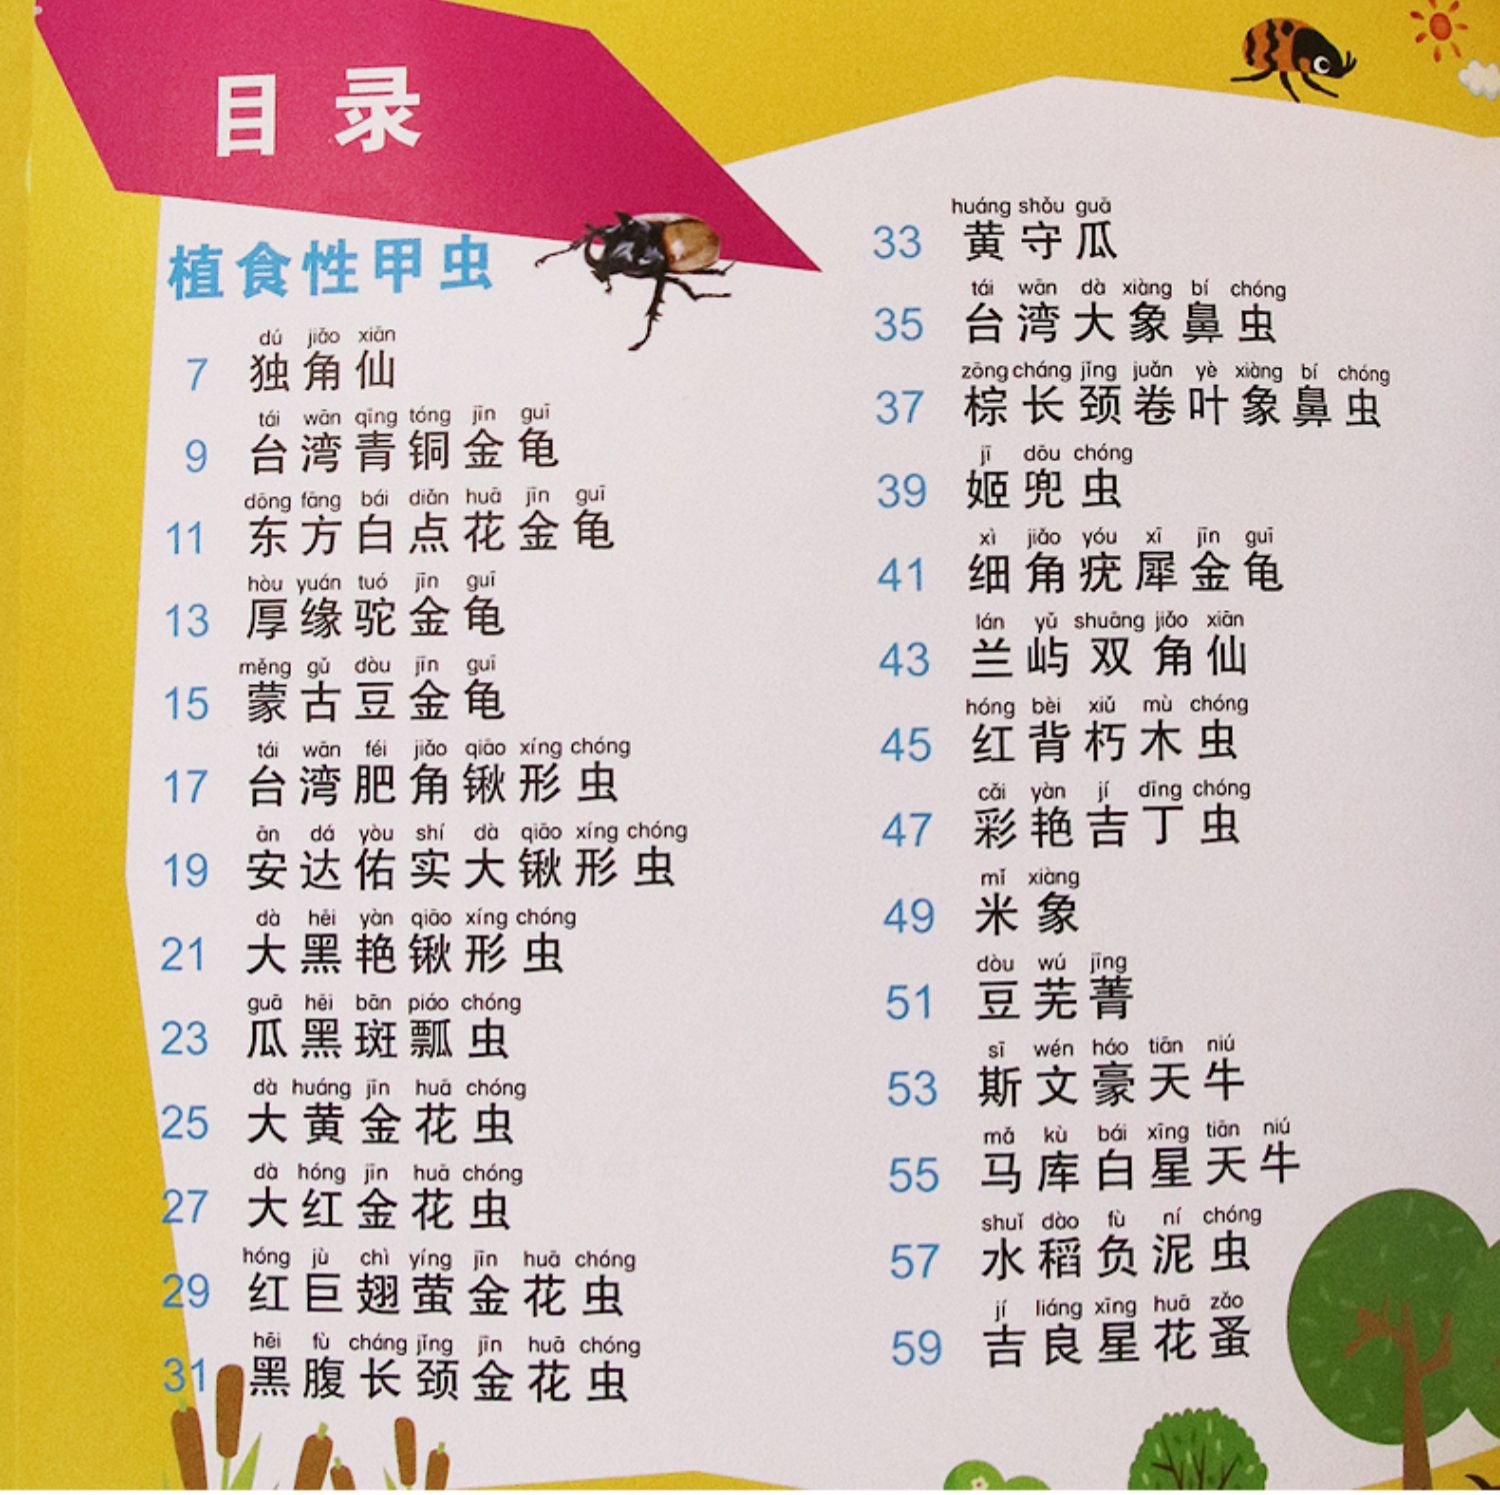 目录
植食性甲虫
dú jiǎo xiān
7 独角仙
tái wān qīng tóng jīn guī
9 台湾青铜金龟
dōng fāng bái diǎn huā jīn guī
11 东方白点花金龟
hòu yuán tuó jīn guī
13 厚缘驼金龟
měng gǔ dòu jīn guī
15 蒙古豆金龟
tái wān féi jiǎo qiāo xíng chóng
17 台湾肥角锹形虫
ān dá yòu shí dà qiāo xíng chóng
19 安达佑实大锹形虫
dà hēi yàn qiāo xíng chóng
21 大黑艳锹形虫
guā hēi bān piáo chóng
23 瓜黑斑瓢虫
dà huáng jīn huā chóng
25 大黄金花虫
dà hóng jīn huā chóng
27 大红金花虫
hóng jù chì yíng jīn huā chóng
29 红巨翅萤金花虫
hēi fù cháng jǐng jīn huā chóng
31 黑腹长颈金花虫
huáng shǒu guā
33 黄守瓜
tái wān dà xiàng bí chóng
35 台湾大象鼻虫
zōng cháng jǐng juǎn yè xiàng bí chóng
37 棕长颈卷叶象鼻虫
jī dōu chóng
39 姬兜虫
xì jiǎo yóu xī jīn guī
41 细角疣犀金龟
lán yǔ shuāng jiǎo xiān
43 兰屿双角仙
hóng bèi xiǔ mù chóng
45 红背朽木虫
cǎi yàn jí dīng chóng
47 彩艳吉丁虫
mǐ xiàng
49 米象
dòu wú jīng
51 豆芜菁
sī wén háo tiān niú
53 斯文豪天牛
mǎ kù bái xīng tiān niú
55 马库白星天牛
shuǐ dào fù ní chóng
57 水稻负泥虫
jí liáng xīng huā zǎo
59 吉良星花蚤